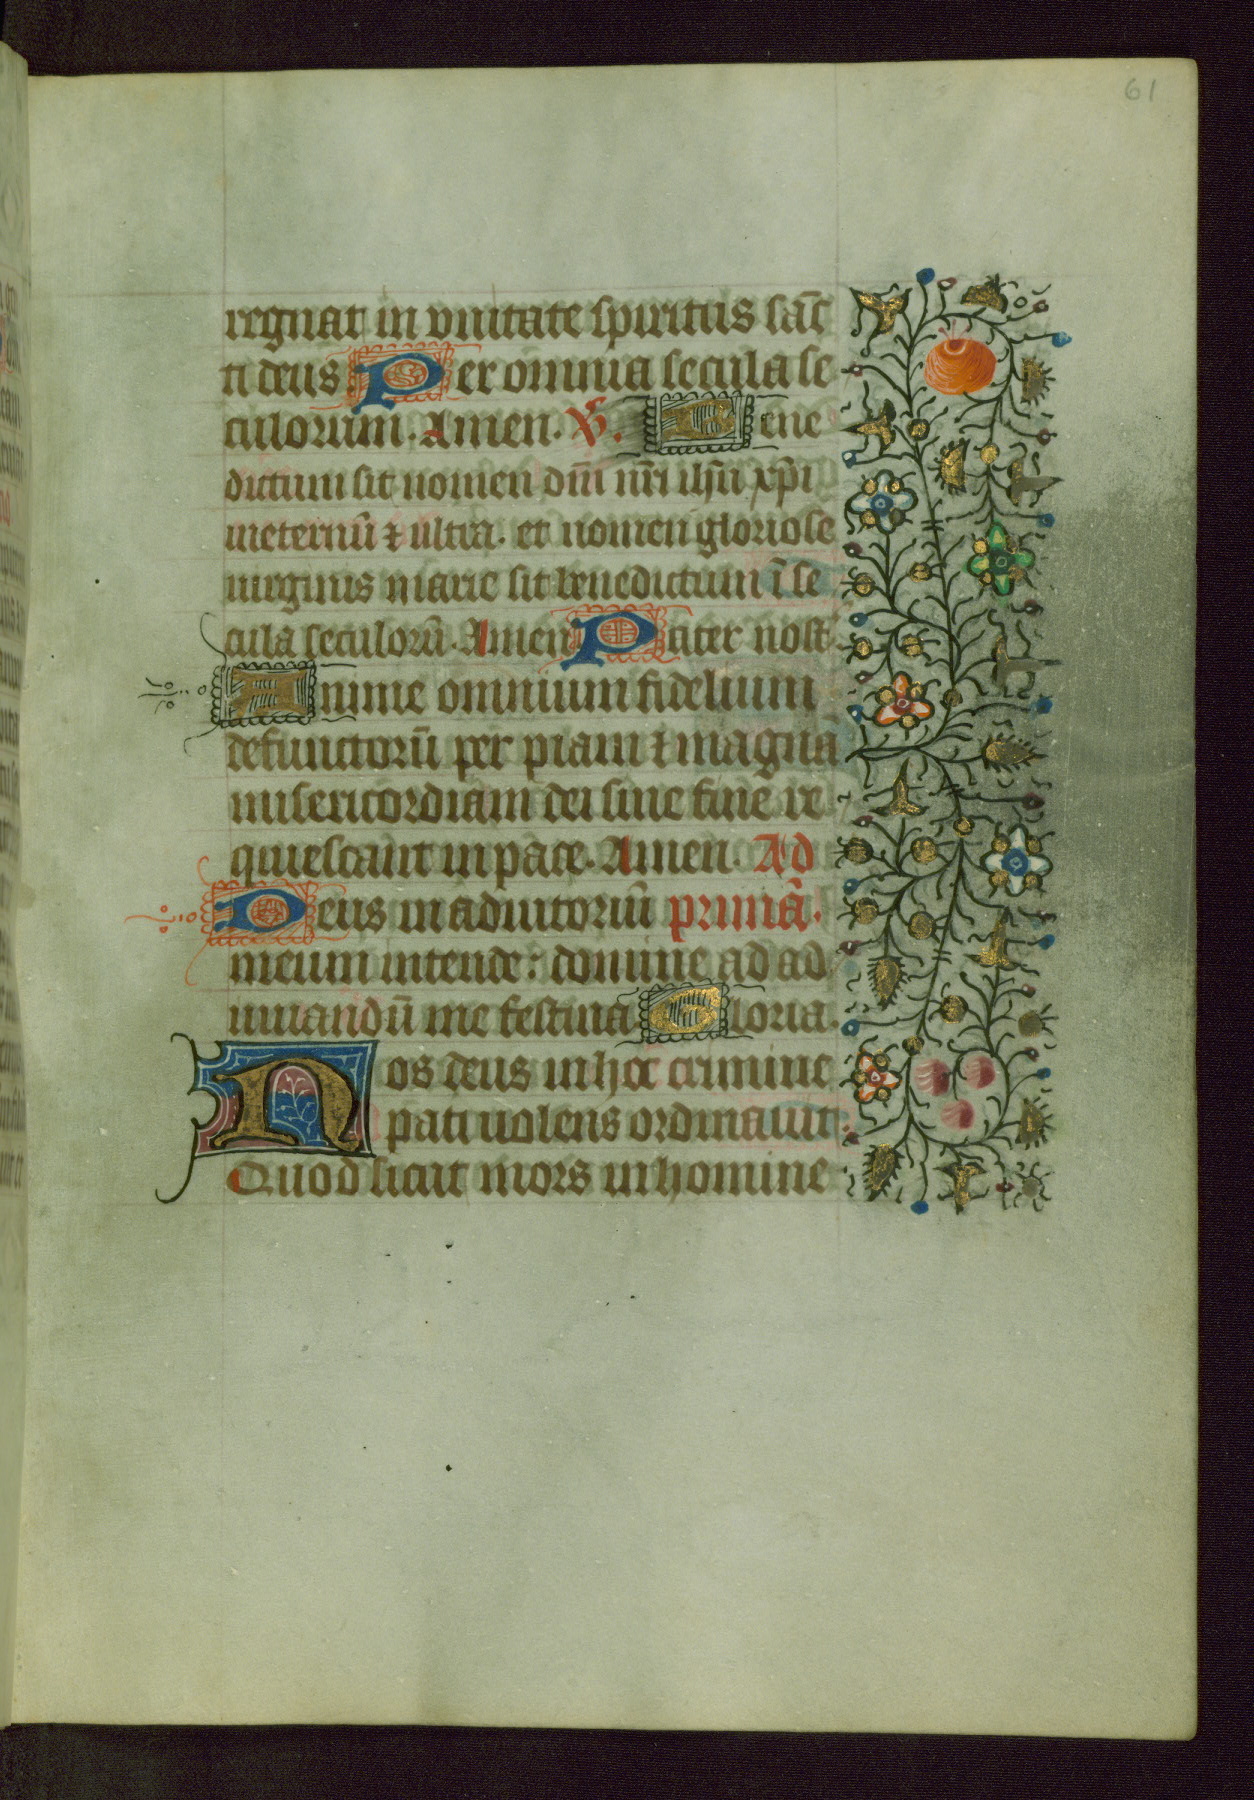 61
regnat in vnitate spiritus sāc
ti deus. Per omnia secula se
culorum. Amen. V̄. Bene
dictum sit nomen dn̄i nr̄i ihū xp̄i
ineternū ⁊ ultra. et nomen gloriose
uirginis marie sit benedictum ī se
cula seculorū. Amen Pater nost
Anime omnium fidelium
defunctorū per piam ⁊ magnā
misericordiam dei sine fine re
quiescant in pace. Amen. Ad
Deus in adiutoriū primā.
meum intende: domine ad ad
iuuandū me festina Gloria.
Hos deus in hoc crimine
pati uolens ordinauit:
Quod sicut mors in homine